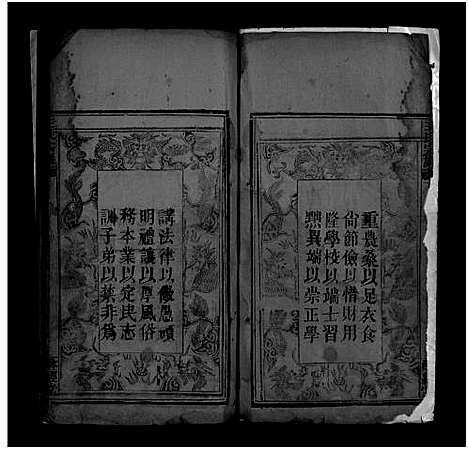 重農桑以足衣食
尙節儉以惜財用
隆學校以端士習
黜異端以崇正學
講法律以儆愚頑
明禮讓以厚風俗
務本業以定民志
訓子弟以禁非爲